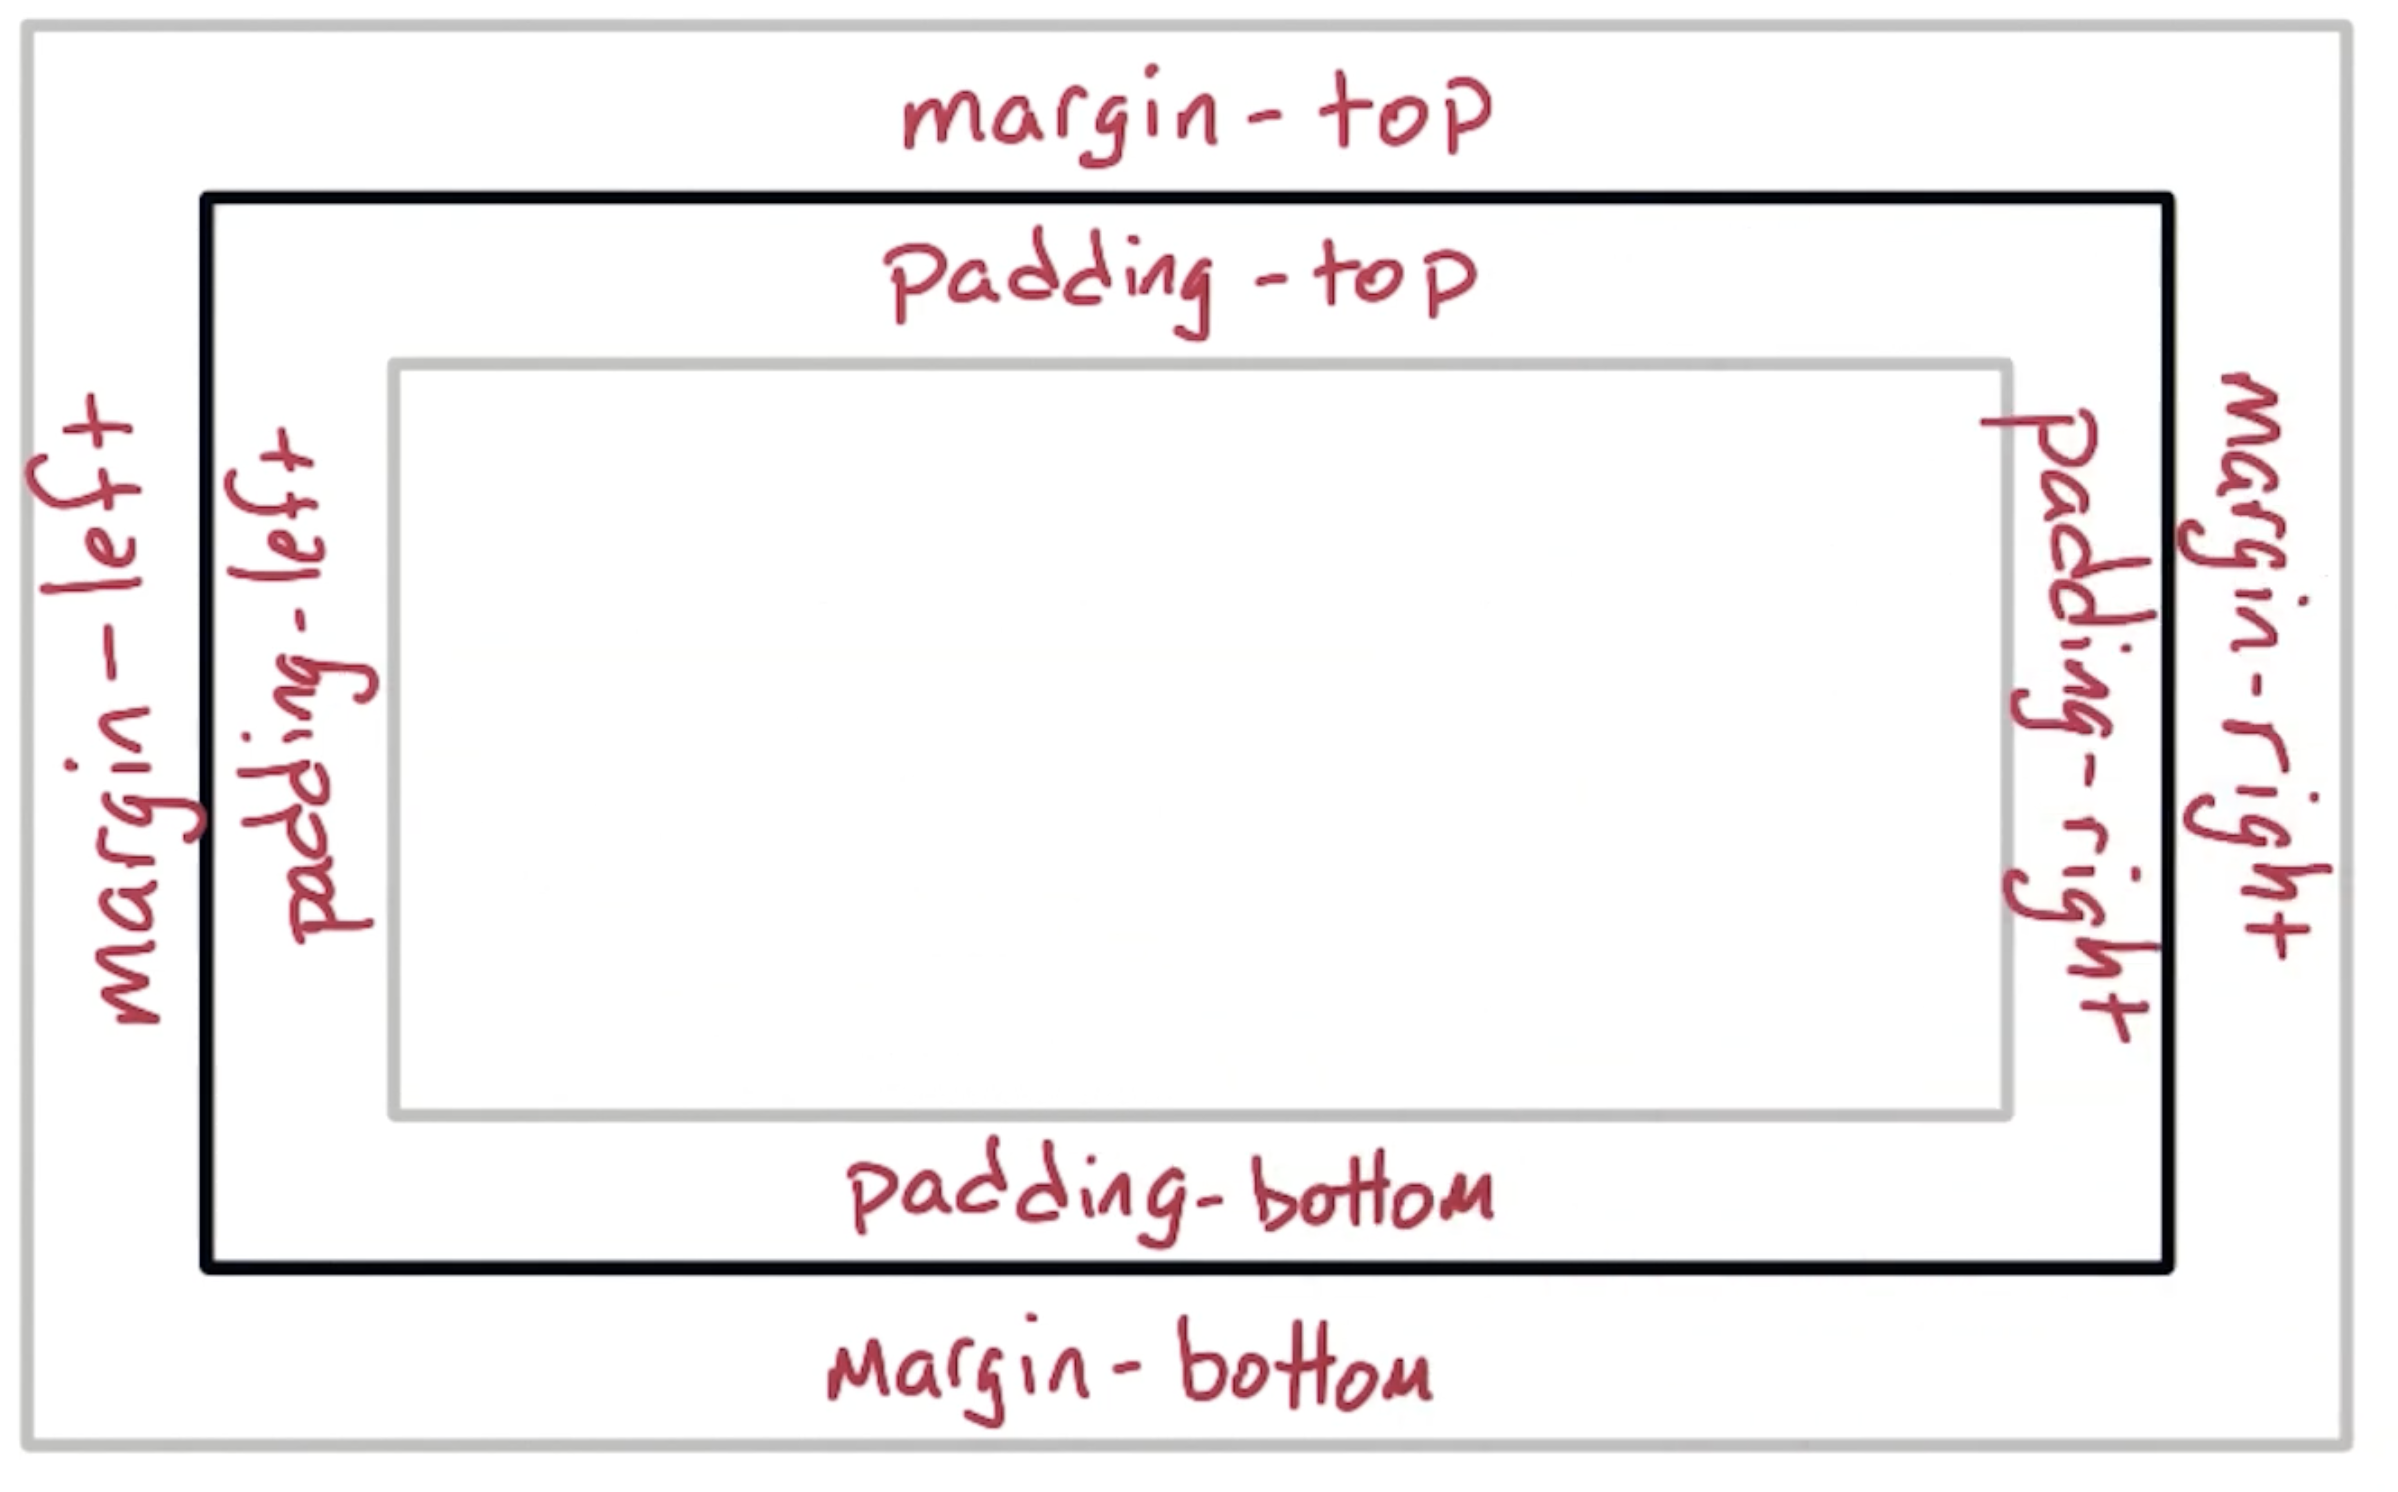 margin-top
padding-top
margin-left
padding-left
padding-right
margin-right
padding-bottom
Margin-bottom